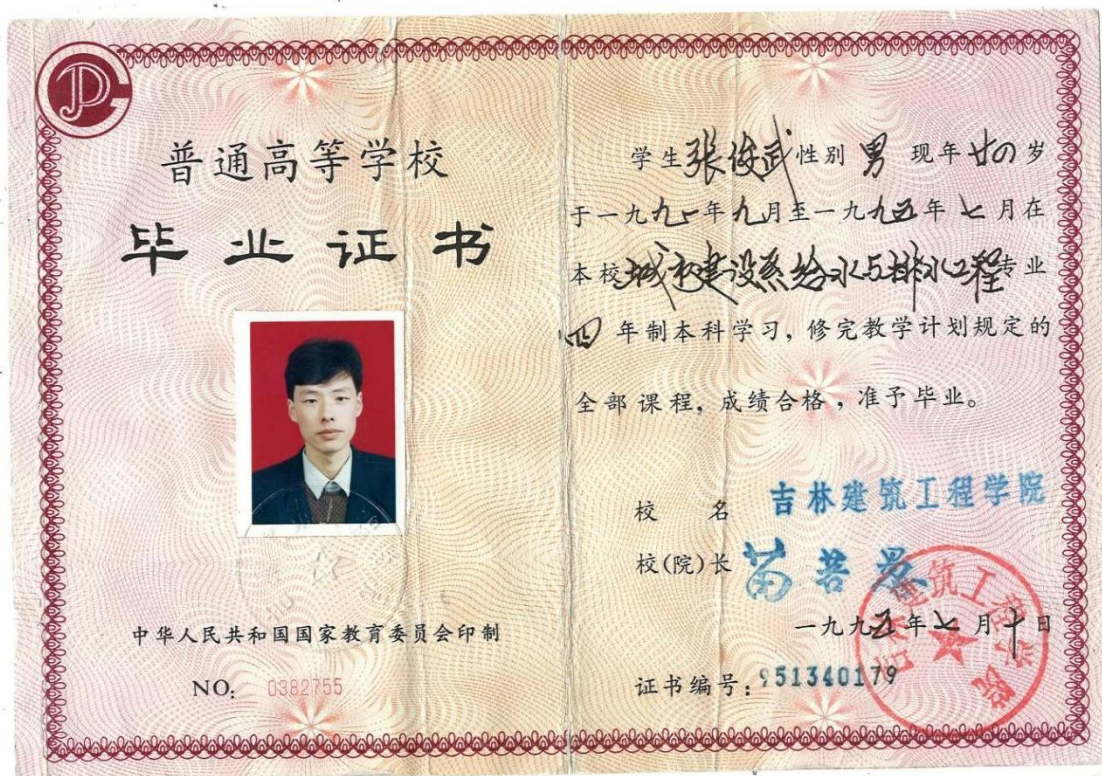 普通高等学校
毕业证书
中华人民共和国国家教育委员会印制
NO: 0382755
学生张俊武性别 男 现年廿四岁
于一九九一年九月至一九九五年七月在
本校城市建设系给水与排水工程专业
四年制本科学习，修完教学计划规定的
全部课程，成绩合格，准予毕业。
校 名 吉林建筑工程学院
校(院)长
一九九五年七月十日
证书编号：951340179
吉林建筑工程学院